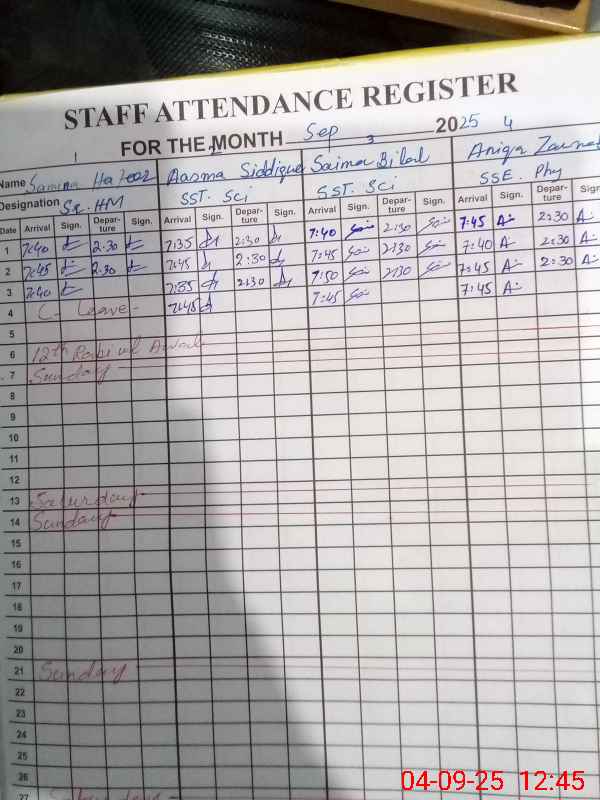 STAFF ATTENDANCE REGISTER
FOR THE MONTH Sep 2025
1 2 3 4
Name Samina Aasma Siddique Saima Bilal Aniqa
Designation Sr. HM SST. Sci SST. Sci SSE. Phy
Date Arrival Sign. Depar-ture Sign. Arrival Sign. Depar-ture Sign. Arrival Sign. Depar-ture Sign. Arrival Sign. Depar-ture Sign.
1 7:40 2:30 7:35 2:30 7:40 2:30 7:45 2:30
2 7:45 2:30 7:45 2:30 7:45 2:30 7:40 2:30
3 7:40 7:35 2:30 7:50 2:30 7:45 2:30
4 C- Leave- 7:45 7:45 7:45
5
6 12th Rabi ul Awal
7 Sunday
8
9
10
11
12
13 Saturday
14 Sunday
15
16
17
18
19
20
21 Sunday
22
23
24
25
26
27
04-09-25 12:45